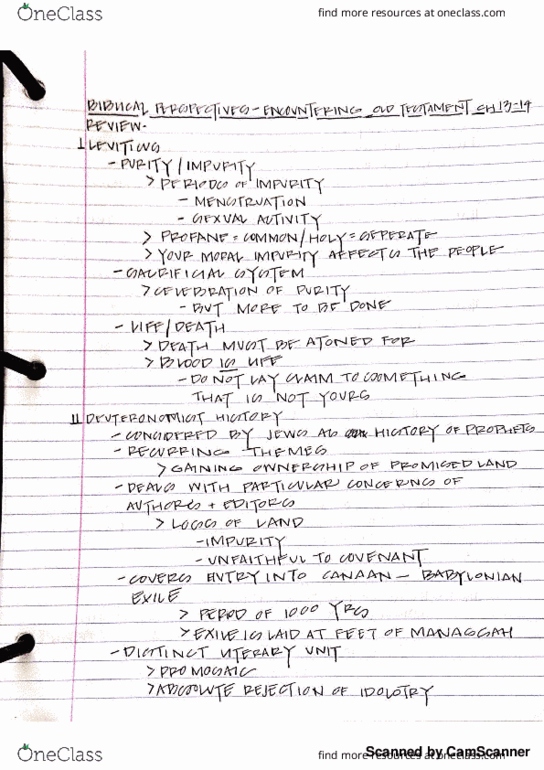 OneClass
find more resources at oneclass.com
BIBLICAL PERSPECTIVES - ENCOUNTERING OLD TESTAMENT CH 13-19
REVIEW-
I LEVITICUS
- PURITY / IMPURITY
> PERIODS OF IMPURITY
- MENSTRUATION
- SEXUAL ACTIVITY
> PROFANE = COMMON / HOLY = SEPERATE
> YOUR MORAL IMPURITY AFFECTS THE PEOPLE
- SACRIFICIAL SYSTEM
> CELEBRATION OF PURITY
- BUT MORE TO BE DONE
- LIFE / DEATH
> DEATH MUST BE ATONED FOR
> BLOOD IS LIFE
- DO NOT LAY CLAIM TO SOMETHING
THAT IS NOT YOURS
II DEUTERONOMIST HISTORY
- CONSIDERED BY JEWS AS HISTORY OF PROPHETS
- RECURRING THEMES
> GAINING OWNERSHIP OF PROMISED LAND
- DEALS WITH PARTICULAR CONCERNS OF
AUTHORS + EDITORS
> LOSS OF LAND
- IMPURITY
- UNFAITHFUL TO COVENANT
- COVERS ENTRY INTO CANAAN - BABYLONIAN
EXILE
> PERIOD OF 1000 YRS
> EXILE IS LAID AT FEET OF MANASSAH
- DISTINCT LITERARY UNIT
> PRO MOSAIC
> ABSOLUTE REJECTION OF IDOLOTRY
OneClass
find more resources at oneclass.com
Scanned by CamScanner